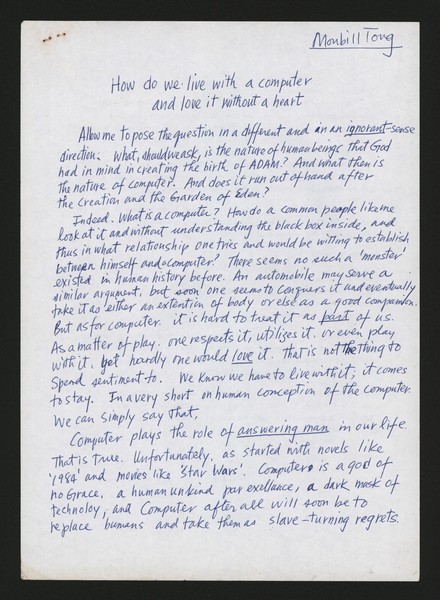 Monbill Tong
How do we live with a computer
and love it without a heart
Allow me to pose the question in a different and in an ignorant-sense
direction: What, should we ask, is the nature of human beings that God
had in mind in creating the birth of ADAM? And what then is
the nature of computer. And does it run out of hand after
the Creation and the Garden of Eden?
Indeed. What is a computer? How do a common people like me
look at it and without understanding the black box inside, and
thus in what relationship one tries and would be willing to establish
between himself and a computer? There seems no such a 'monster'
existed in human history before. An automobile may serve a
similar argument, but soon one seems to conquers it and eventually
take it as either an extention of body or else as a good companion.
But as for computer. it is hard to treat it as part of us.
As a matter of play. one respects it, utilizes it. or even play
with it. yet hardly one would love it. That is not the thing to
spend sentiment to. We know we have to live with it; it comes
to stay. In a very short on human conception of the computer.
We can simply say that,
Computer plays the role of answering man in our life.
That is True. Unfortunately. as started with novels like
'1984' and movies like 'Star Wars'. Computer is a god of
no Grace, a human unkind par exellance, a dark mask of
technoloy, and Computer after all will soon be to
replace humans and take them as slave-turning regrets.